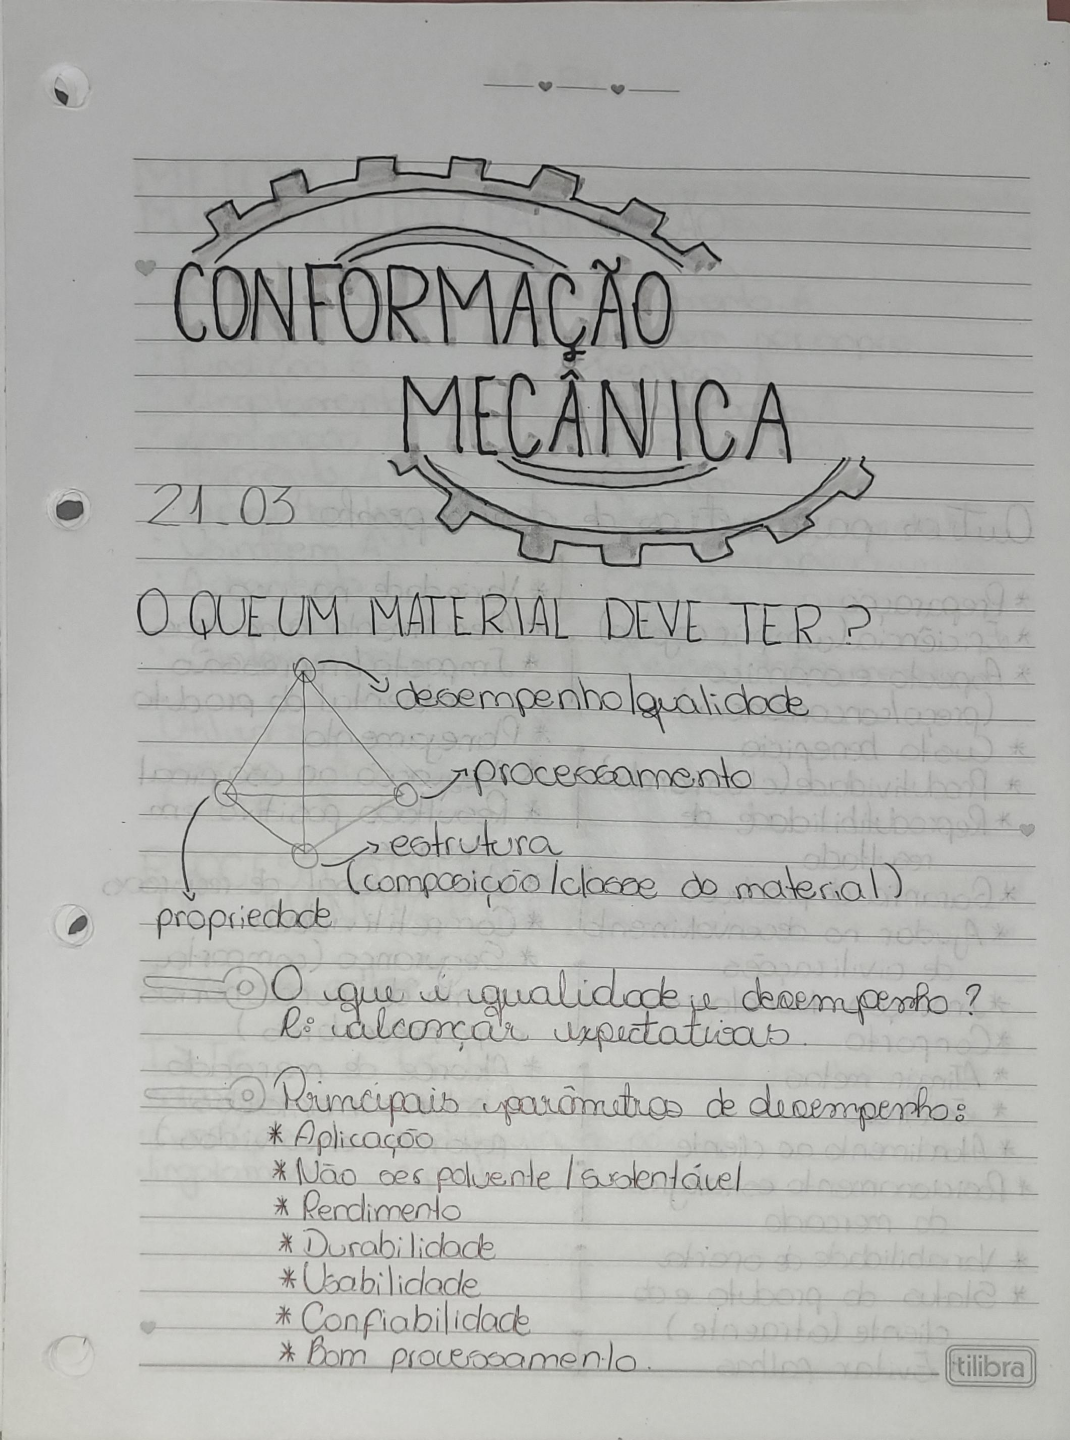 CONFORMAÇÃO
MECÂNICA
21_03
O QUE UM MATERIAL DEVE TER?
desempenho/qualidade
processamento
estrutura
(composição/classe do material)
propriedade
O que é qualidade e desempenho?
R: alcançar expectativas.
Principais parâmetros de desempenho:
* Aplicação
* Não ser poluente / sustentável
* Rendimento
* Durabilidade
* Usabilidade
* Confiabilidade
* Bom processamento.
tilibra